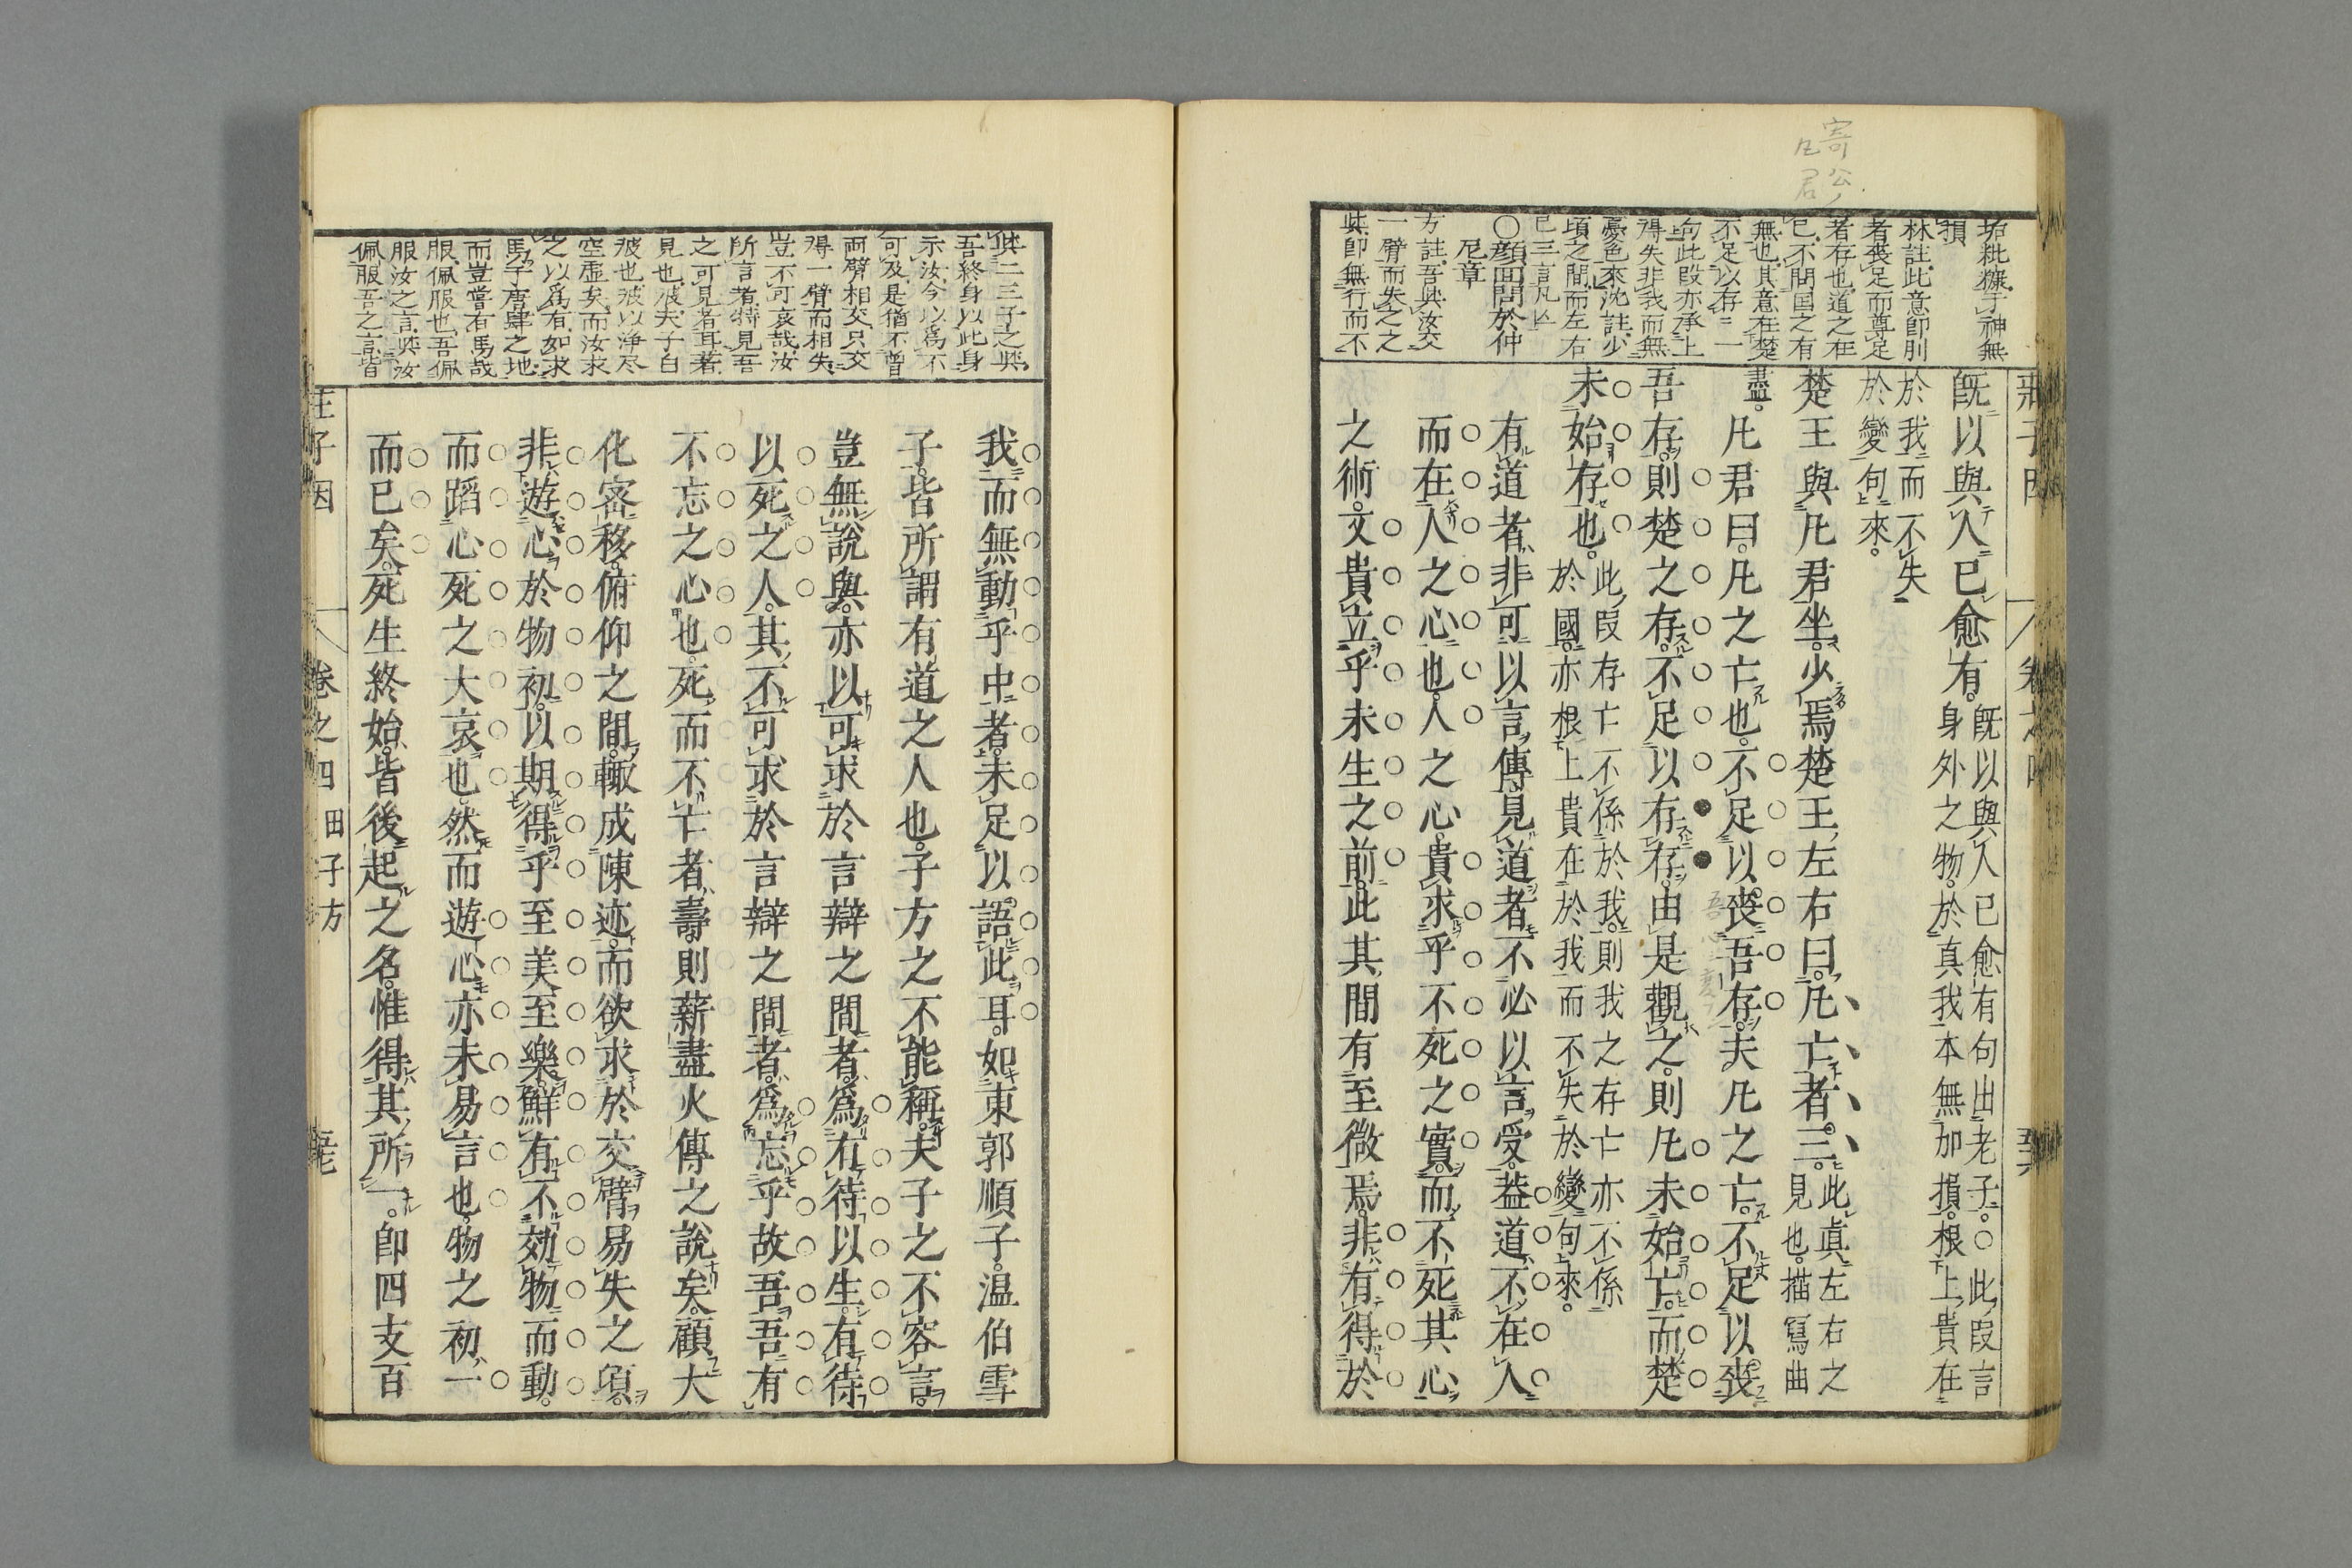 寄公ノ
凡君
垢粃糠于神無
損
林註此意卽刖
者喪足而尊足
者存也道之在
已不問国之有
無也其意在楚
不足以存一
句此段亦承上
得失非我而無
憂色來沈註少
頃之間而左右
已三言凡亾
○顔囘問於仲
尼章
方註吾與汝交
一臂而失之之
與卽無行而不
莊子因 卷之四
既以與人已愈有。既以與人已愈有句出老子。○此段言
身外之物。於真我本無加損。根上貴在
於我而不失
於變句來。
楚王與凡君坐。少焉楚王左右曰。凡亡者三。此眞左右之
見也。描冩曲
盡。
凡君曰。凡之亡也。不足以喪吾存。夫凡之亡。不足以喪
吾存。則楚之存。不足以存存。由是觀之。則凡未始亡。而楚
未始存也。此段存亡不係於我。則我之存亡亦不係
於國。亦根上貴在於我而不失於變句來。
有道者。非可以言傳。見道者。不必以言受。葢道不在人
而在人之心也。人之心。貴求乎不死之實。而不死其心
之術。又貴立乎未生之前。此其間有至微焉。非有得於
與二三子之與
吾終身以此身
示汝今以爲不
可及是猶不曾
両臂相交只交
得一臂而相失
豈不可哀哉汝
所言者特見吾
之可見者耳著
見也彼夫子自
彼也彼以浄尽
空虛矣而汝求
之以爲有如求
馬于唐肆之地
而豈嘗有馬哉
服佩服也吾佩
服汝之言與汝
佩服吾之言皆
我而無動乎中者。未足以語此耳。如東郭順子。温伯雪
子。皆所謂有道之人也。子方之不能稱。夫子之不容言。
豈無說與。亦以可求於言辯之間者。爲有待以生。有待
以死之人。其不可求於言辯之間者。爲忘乎故吾。吾有
不忘之心也。死而不亡者壽。則薪盡火傳之說矣。顧大
化密移。俯仰之間。輙成陳迹。而欲求於交臂易失之頃。
非遊心於物初。以期得乎至美至樂。鮮有不効物而動。
而蹈心死之大哀也。然而遊心亦未易言也。物之初一
而已矣。死生終始。皆後起之名。惟得其所一。卽四支百
莊子因 卷之四 田子方